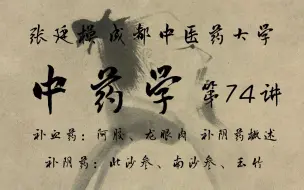 张廷模成都中医药大学
中药学 第74讲
补血药：阿胶、龙眼肉 补阴药概述
补阴药：北沙参、南沙参、玉竹